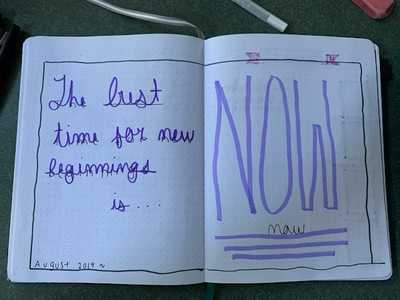 The best
time for new
beginnings
is ...
AUGUST 2019 ~
NOW
now